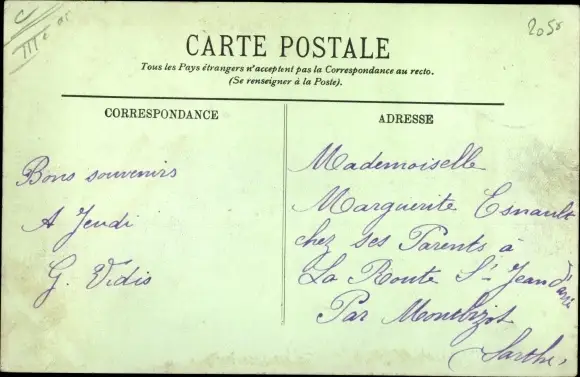 2050
CARTE POSTALE
Tous les Pays étrangers n'acceptent pas la Correspondance au recto.
(Se renseigner à la Poste).
CORRESPONDANCE
ADRESSE
Bons souvenirs
A Jeudi
G. Vidis
Mademoiselle
Marguerite Esnault
chez ses Parents à
La Route St Jean d'assé
Par Montbizot
Sarthe